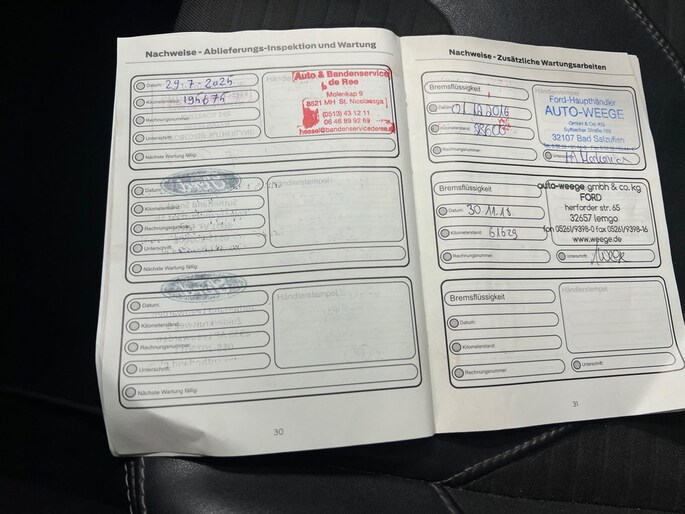 Nachweise - Ablieferungs-Inspektion und Wartung
Datum: 29-7-2025
Kilometerstand: 195675
Rechnungsnummer:
Unterschrift:
Nächste Wartung fällig:
Auto & Bandenservice
de Ree
Molenkap 9
8521 MH St. Nicolaasga
(0513) 43 12 11
06 46 89 92 69
hessel@bandenservicederee.nl
Datum:
Kilometerstand:
Rechnungsnummer:
Unterschrift:
Nächste Wartung fällig:
Händlerstempel
Datum:
Kilometerstand:
Rechnungsnummer:
Unterschrift:
Nächste Wartung fällig:
Händlerstempel
30
Nachweise - Zusätzliche Wartungsarbeiten
Bremsflüssigkeit
Datum:
Kilometerstand:
Rechnungsnummer:
Ford-Haupthändler
AUTO-WEEGE
GmbH & Co. KG
32107 Bad Salzuflen
Unterschrift:
Bremsflüssigkeit
Datum: 30.11.18
Kilometerstand: 61629
Rechnungsnummer:
auto-weege gmbh & co. kg
FORD
herforder str. 65
32657 lemgo
fon 05261/9398-0 fax 05261/9398-16
www.weege.de
Unterschrift: Weege
Bremsflüssigkeit
Datum:
Kilometerstand:
Rechnungsnummer:
Händlerstempel
Unterschrift:
31